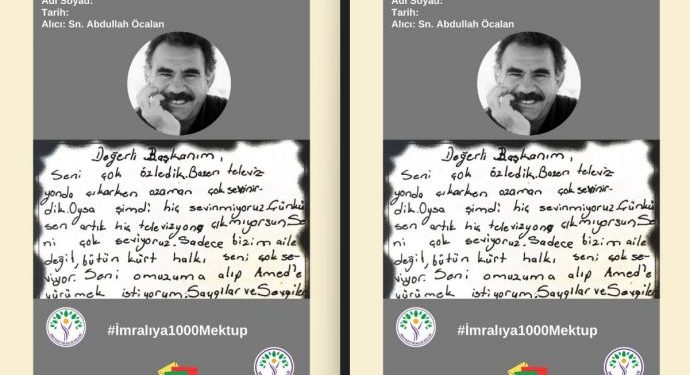 Adı Soyad:
Tarih:
Alıcı: Sn. Abdullah Öcalan
Değerli Başkanım,
Seni çok özledik.Bazen televiz
yonda çıkarken ozaman çok sevinir-
dik.Oysa şimdi hiç sevinmiyoruz.Çünkü
sen artık hiç televizyona çıkmıyorsun,Se
ni çok seviyoruz.Sadece bizim aile
değil,bütün kürt halkı seni çok se-
viyor. Seni omuzuma alıp Amed'e
yürümek istiyorum.Saygılar ve Sevgiler
#İmralıya1000Mektup
Adı Soyad:
Tarih:
Alıcı: Sn. Abdullah Öcalan
Değerli Başkanım,
Seni çok özledik.Bazen televiz
yonda çıkarken ozaman çok sevinir-
dik.Oysa şimdi hiç sevinmiyoruz.Çünkü
sen artık hiç televizyona çıkmıyorsun,Se
ni çok seviyoruz.Sadece bizim aile
değil,bütün kürt halkı seni çok se-
viyor. Seni omuzuma alıp Amed'e
yürümek istiyorum.Saygılar ve Sevgiler
#İmralıya1000Mektup